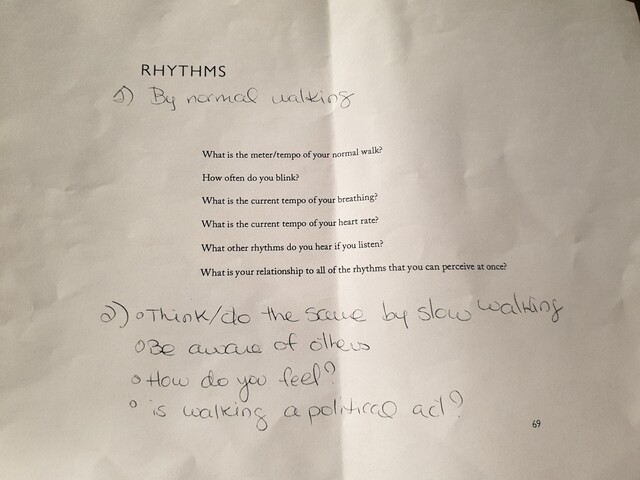 RHYTHMS
1) By normal walking
What is the meter/tempo of your normal walk?
How often do you blink?
What is the current tempo of your breathing?
What is the current tempo of your heart rate?
What other rhythms do you hear if you listen?
What is your relationship to all of the rhythms that you can perceive at once?
2) o Think/do the same by slow walking
o Be aware of others
o How do you feel?
o is walking a political act?
69